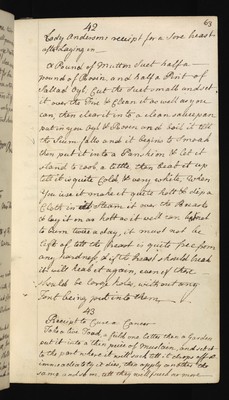 63
42
Lady Andersons receipt for a Sore breast
after laying in
a Pound of Mutton Suet half a
pound of Rosin and half a Pint of
Sallad Oyl Cut the Suet small and set
it over the Fire & Clean it as well as you
can, then clear it into a clean saucepan
put in your Oyl & Rosin and boil it till
the Scum falls and it begins to smoak
then put it into a Panshion & let it
stand to cool a little then beat it up
till it is quite Cold & very white. When
You use it make it quite hott & dip a
Cloth in it & lay it on the Breasts
& lay it on as hott as it well can be
to them twice a day, it must not be
left of till the breast is quite free from
any hardness & if the breast should break
it will heal it again, even if there
should be large holes, without any
Tent being put into them
43
Receipt to Cure a Cancer
Take a live Toad, a field one better than a Garden
put it into a thin piece of Muslain, and set it
to the part where it will suck till it drops off &
immediately it dies, then apply another the
same and so on till they will suck no more